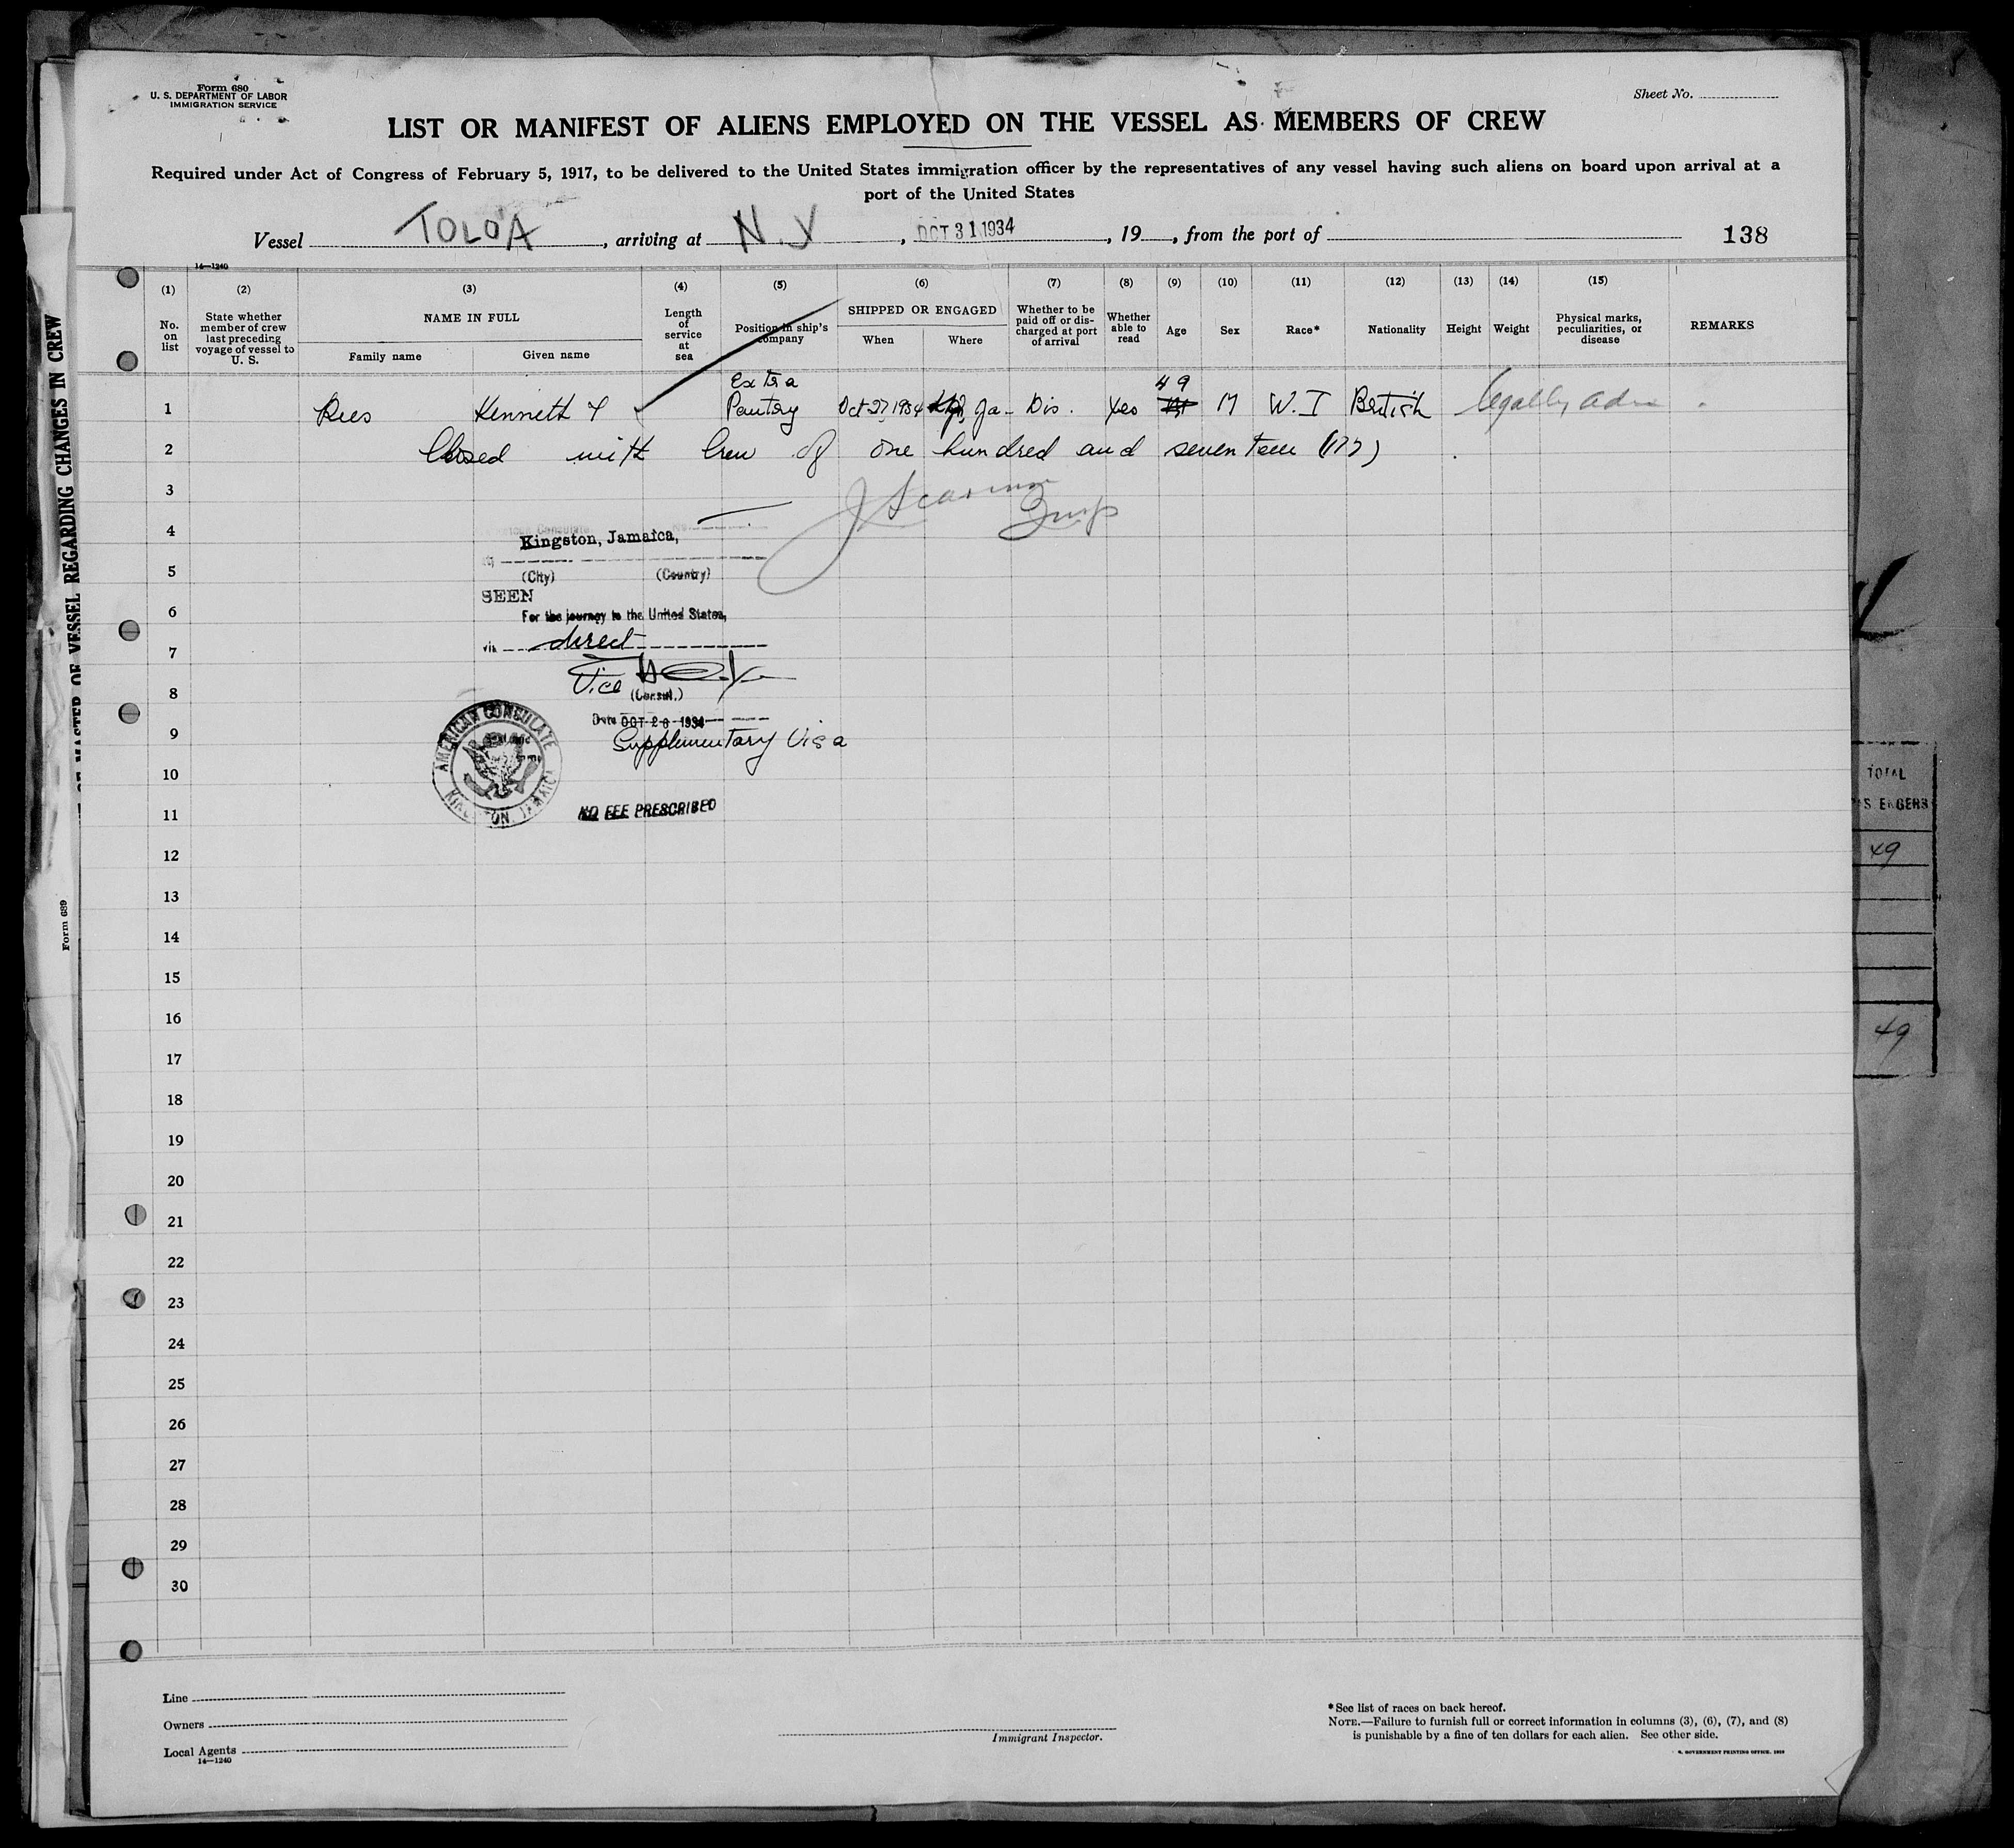 Form 680
U. S. DEPARTMENT OF LABOR
IMMIGRATION SERVICE
Sheet No.
LIST OR MANIFEST OF ALIENS EMPLOYED ON THE VESSEL AS MEMBERS OF CREW
Required under Act of Congress of February 5, 1917, to be delivered to the United States immigration officer by the representatives of any vessel having such aliens on board upon arrival at a
port of the United States
Vessel TOLOA, arriving at N.Y, OCT 31 1934, 19, from the port of 138
14—1240
(1) (2) (3) (4) (5) (6) (7) (8) (9) (10) (11) (12) (13) (14) (15)
No. on list
State whether member of crew last preceding voyage of vessel to U. S.
NAME IN FULL
Family name Given name
Length of service at sea
Position in ship's company
SHIPPED OR ENGAGED
When Where
Whether to be paid off or discharged at port of arrival
Whether able to read
Age Sex Race* Nationality Height Weight
Physical marks, peculiarities, or disease
REMARKS
Extra 49
1 Rees Kenneth Pantry Oct 27 1934 Ja- Dis. Yes M W.I British legally adm
2 Closed with Crew of one hundred and seventeen (117)
3
4
Kingston, Jamaica,
5
(City) (Country)
SEEN
6
For the journey to the United States,
7
via direct
Vice
8
(Consul.)
Date OCT 26 1934
9
Supplementary Visa
AMERICAN CONSULATE
KINGSTON, JAMAICA
10
11
NO FEE PRESCRIBED
12
13
14
15
16
17
18
19
20
21
22
23
24
25
26
27
28
29
30
Line
Owners
Local Agents
14—1240
Immigrant Inspector.
*See list of races on back hereof.
NOTE.—Failure to furnish full or correct information in columns (3), (6), (7), and (8)
is punishable by a fine of ten dollars for each alien. See other side.
GOVERNMENT PRINTING OFFICE
OF VESSEL REGARDING CHANGES IN CREW
Form 689
TOTAL
49
49